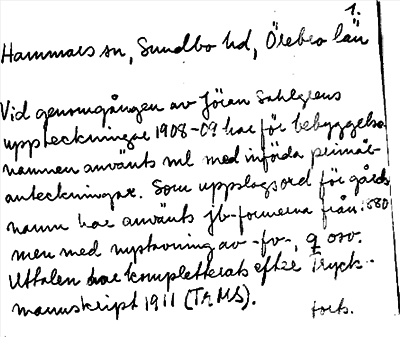 1.
Hammars sn, Sundbo hd, Örebro län
Vid genomgången av Jöran Sahlgrens
uppteckningar 1908-09 har för bebyggelse
namnen använts ml med införda primär-
anteckningar. Som uppslagsord för gårds
namn har använts jb-formerna från 1880
men med nystavning av -fv-, q osv.
Uttalen har kompletterats efter Tryck-
manuskript 1911 (TrMS).
forts.